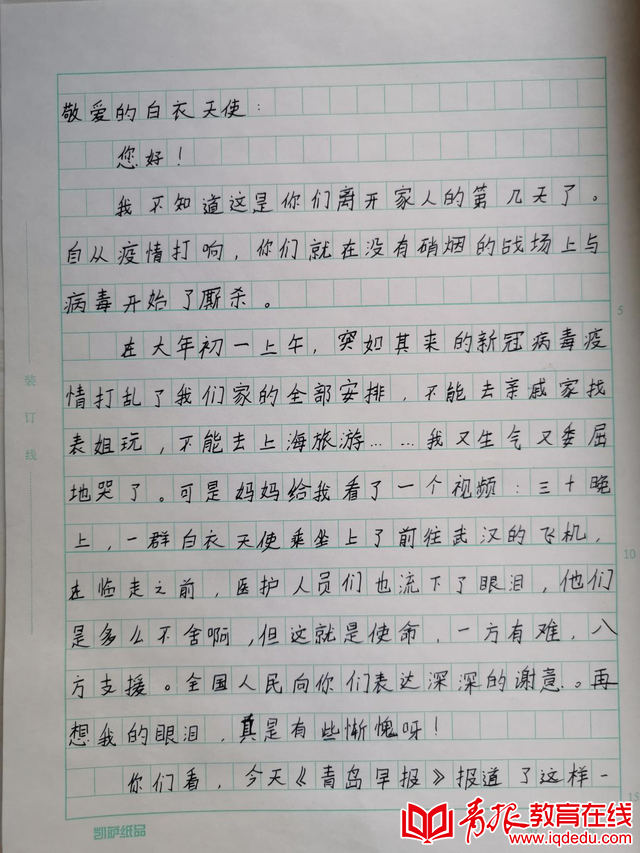 敬爱的白衣天使：
您好！
我不知道这是你们离开家人的第几天了。
自从疫情打响，你们就在没有硝烟的战场上与
病毒开始了厮杀。
在大年初一上午，突如其来的新冠病毒疫
情打乱了我们家的全部安排，不能去亲戚家找
表姐玩，不能去上海旅游……我又生气又委屈
地哭了。可是妈妈给我看了一个视频：三十晚
上，一群白衣天使乘坐上了前往武汉的飞机，
在临走之前，医护人员们也流下了眼泪，他们
是多么不舍啊，但这就是使命，一方有难，八
方支援。全国人民向你们表达深深的谢意。再
想我的眼泪，真是有些惭愧呀！
你们看，今天《青岛早报》报道了这样一
装订线
5
10
15
凯萨纸品
青报教育在线
www.iqdedu.com